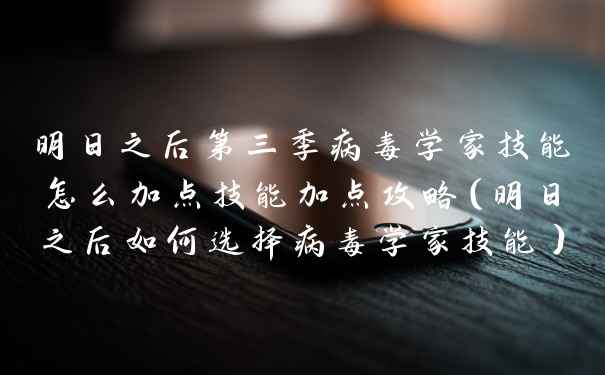 明日之后第三季病毒学家技能
怎么加点技能加点攻略(明日
之后如何选择病毒学家技能)